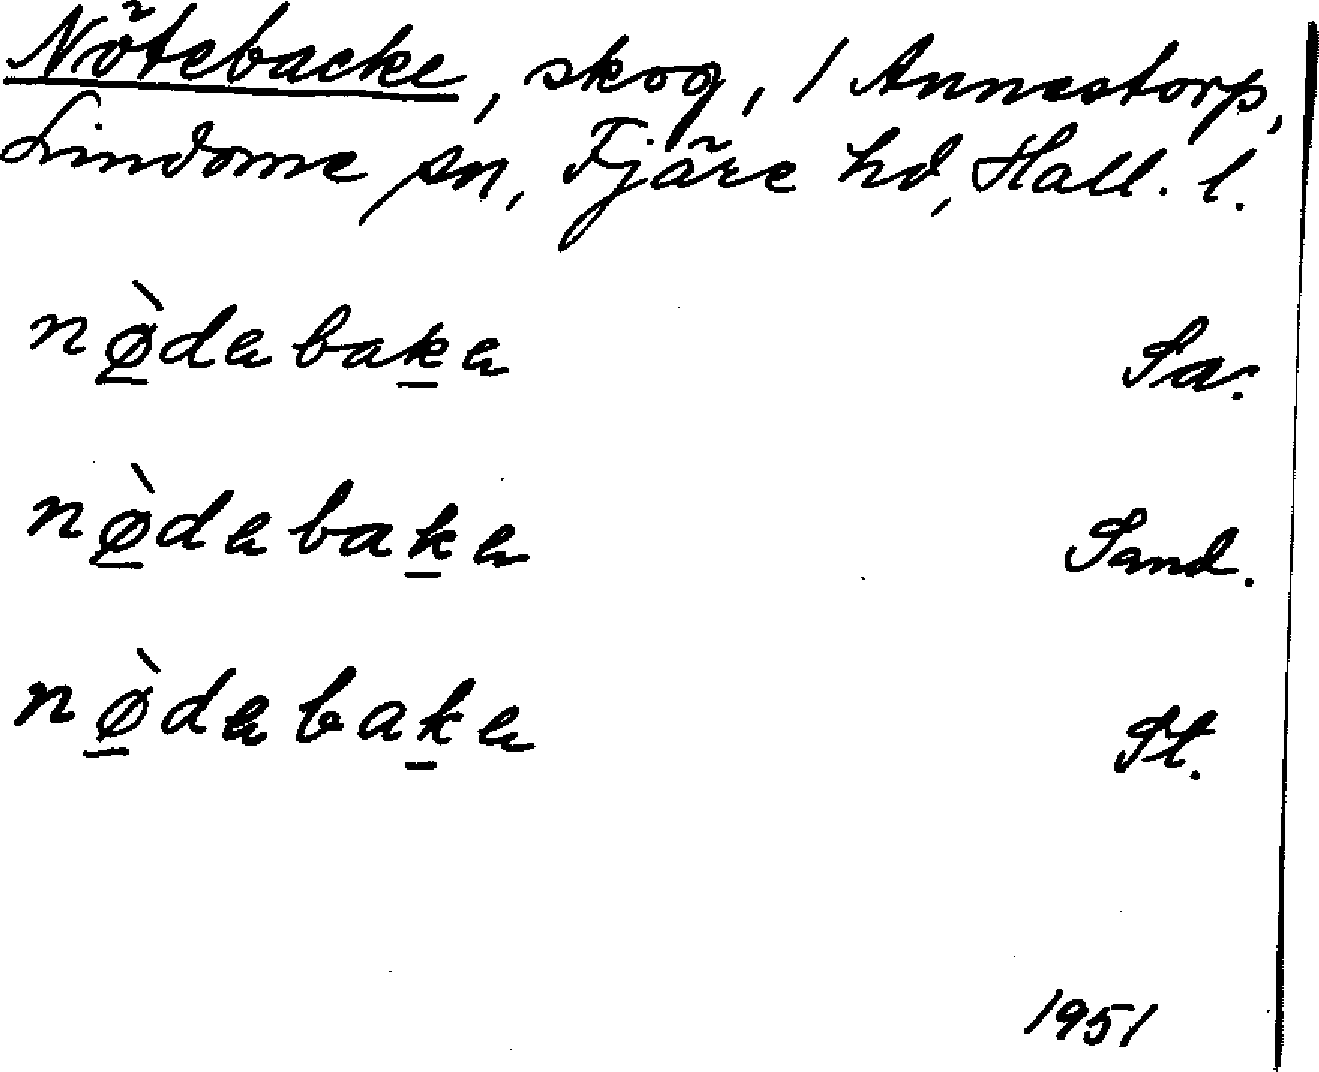 Nötebacke, skog, 1 Annestorp,
Lindome sn, Fjäre hd, Hall. l.
nø̀dabaka Sa.
nø̀dabaka Sand.
nø̀dabaka St.
1951